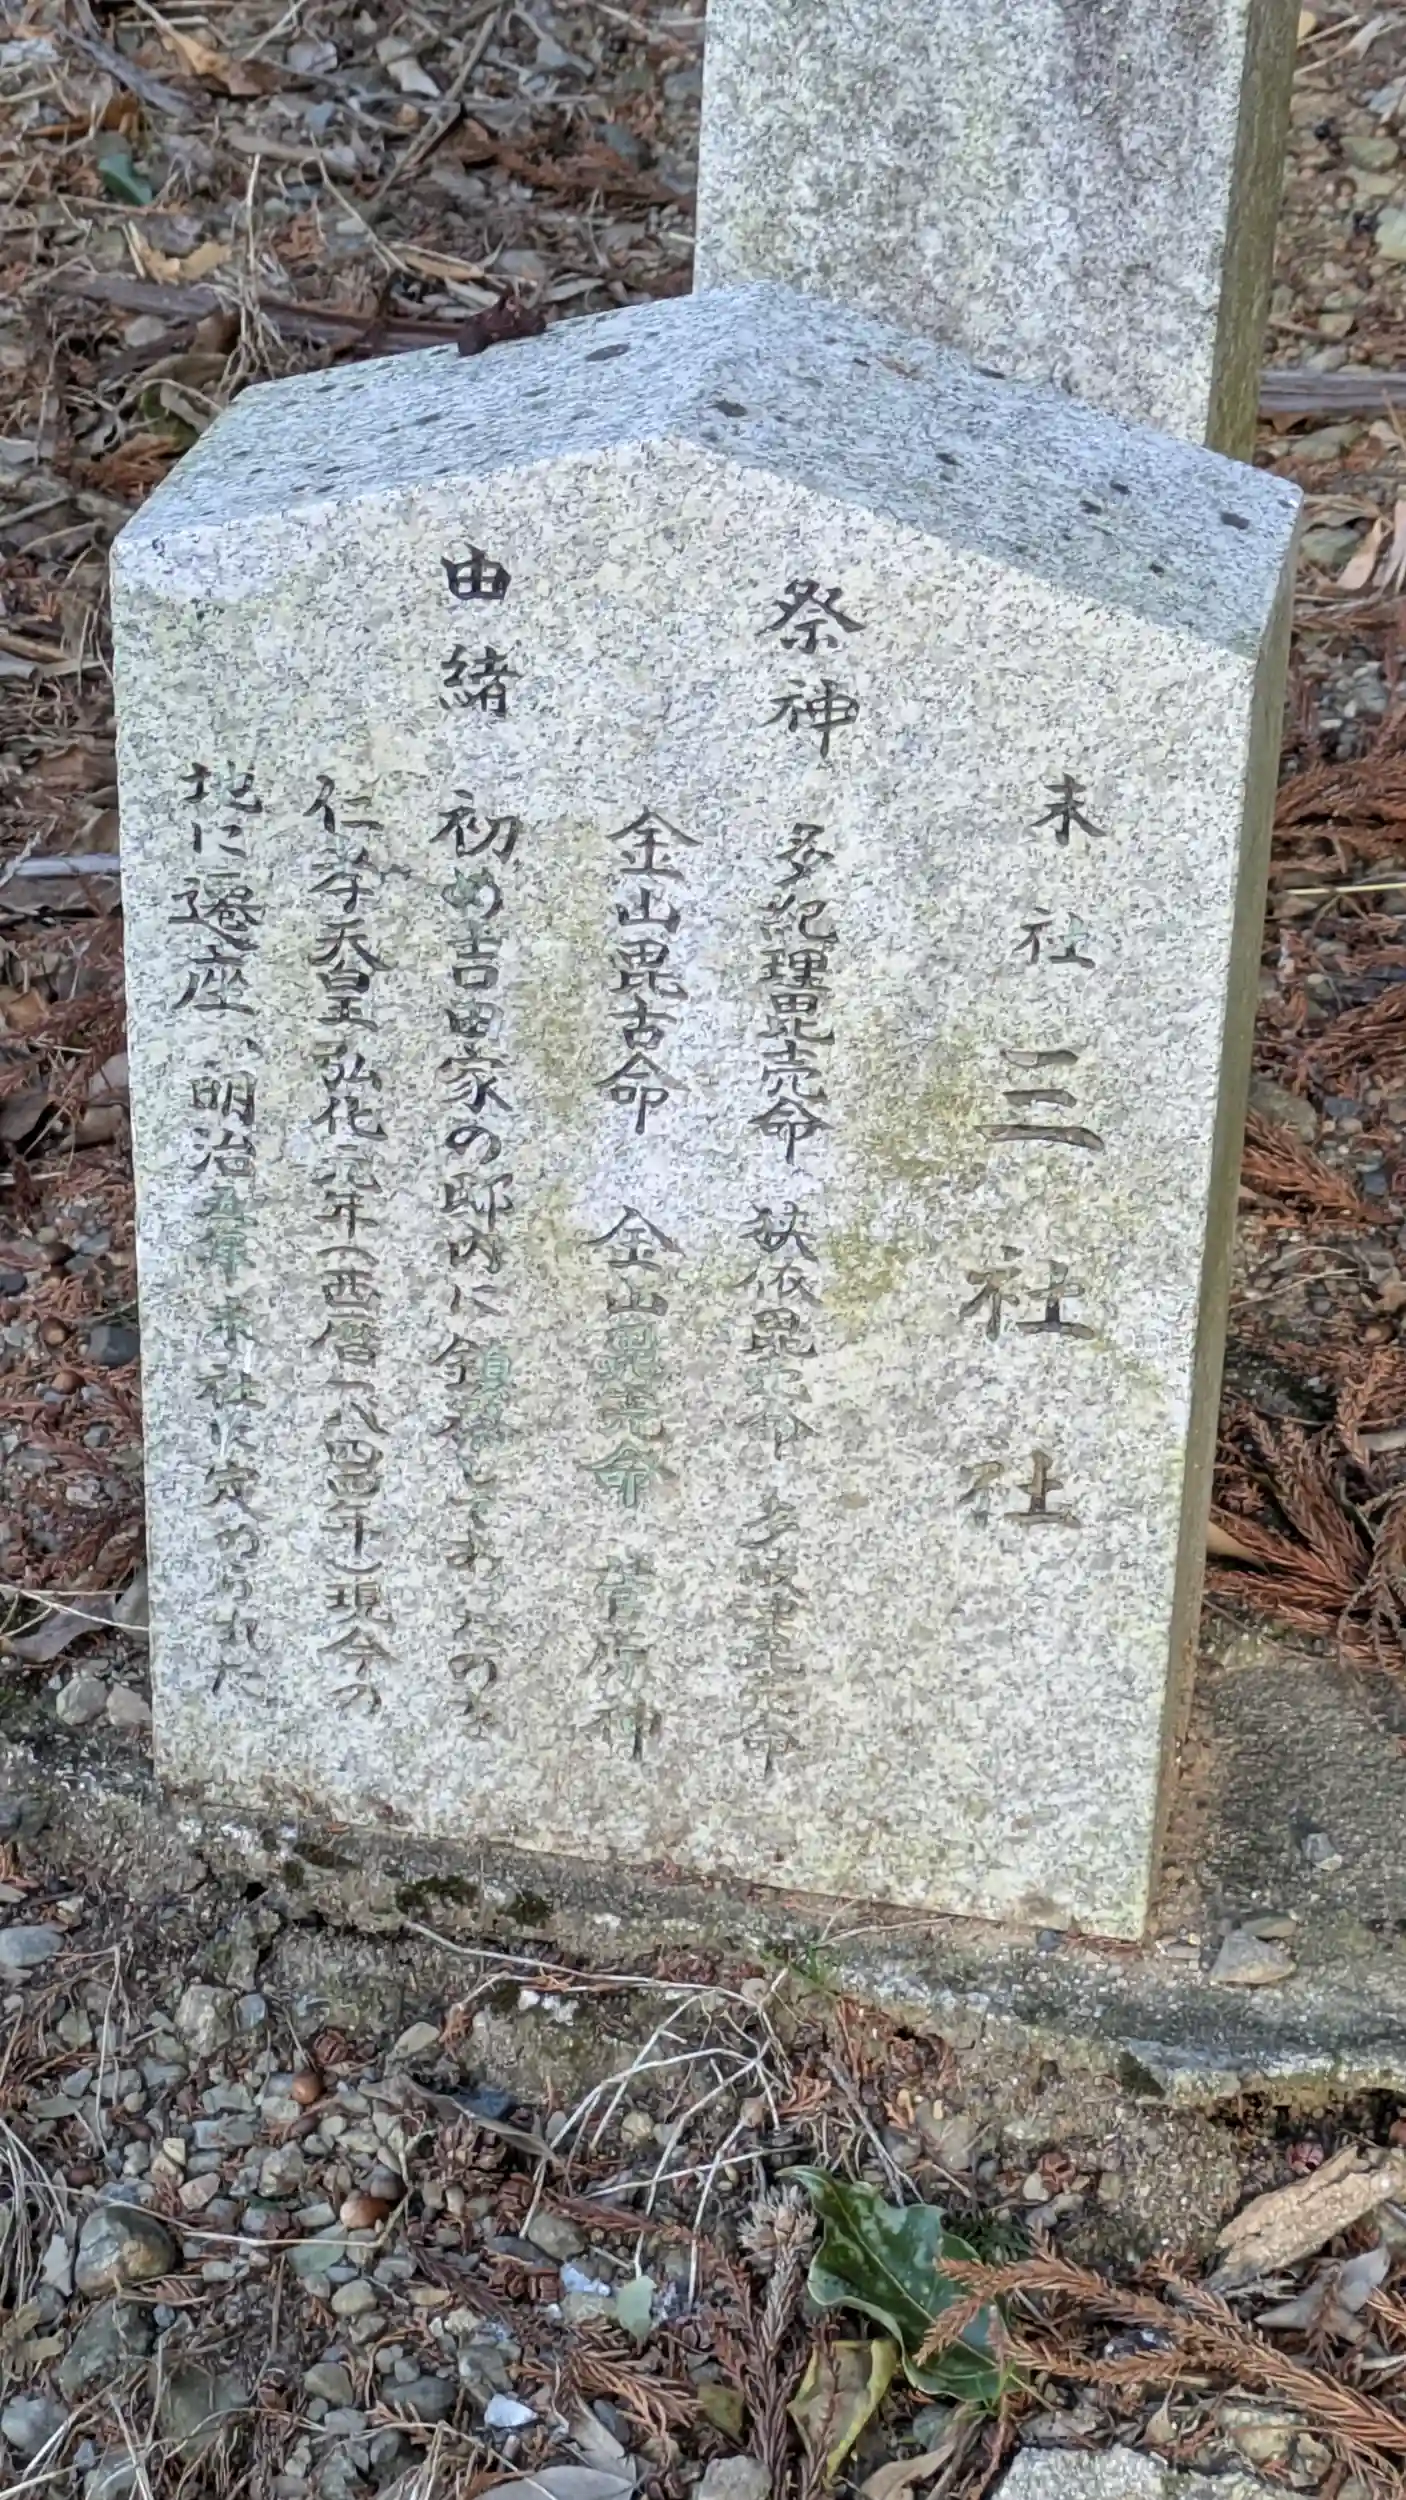 末社 三社社
祭神 多紀理毘売命 狭依毘売命 多岐津毘売命
金山毘古命 金山毘売命 菅原神
由緒 初め吉田家の邸内に鎮祭してあったのを
仁孝天皇弘化元年（西暦一八四四年）現今の
地に遷座、明治五年末社に定められた